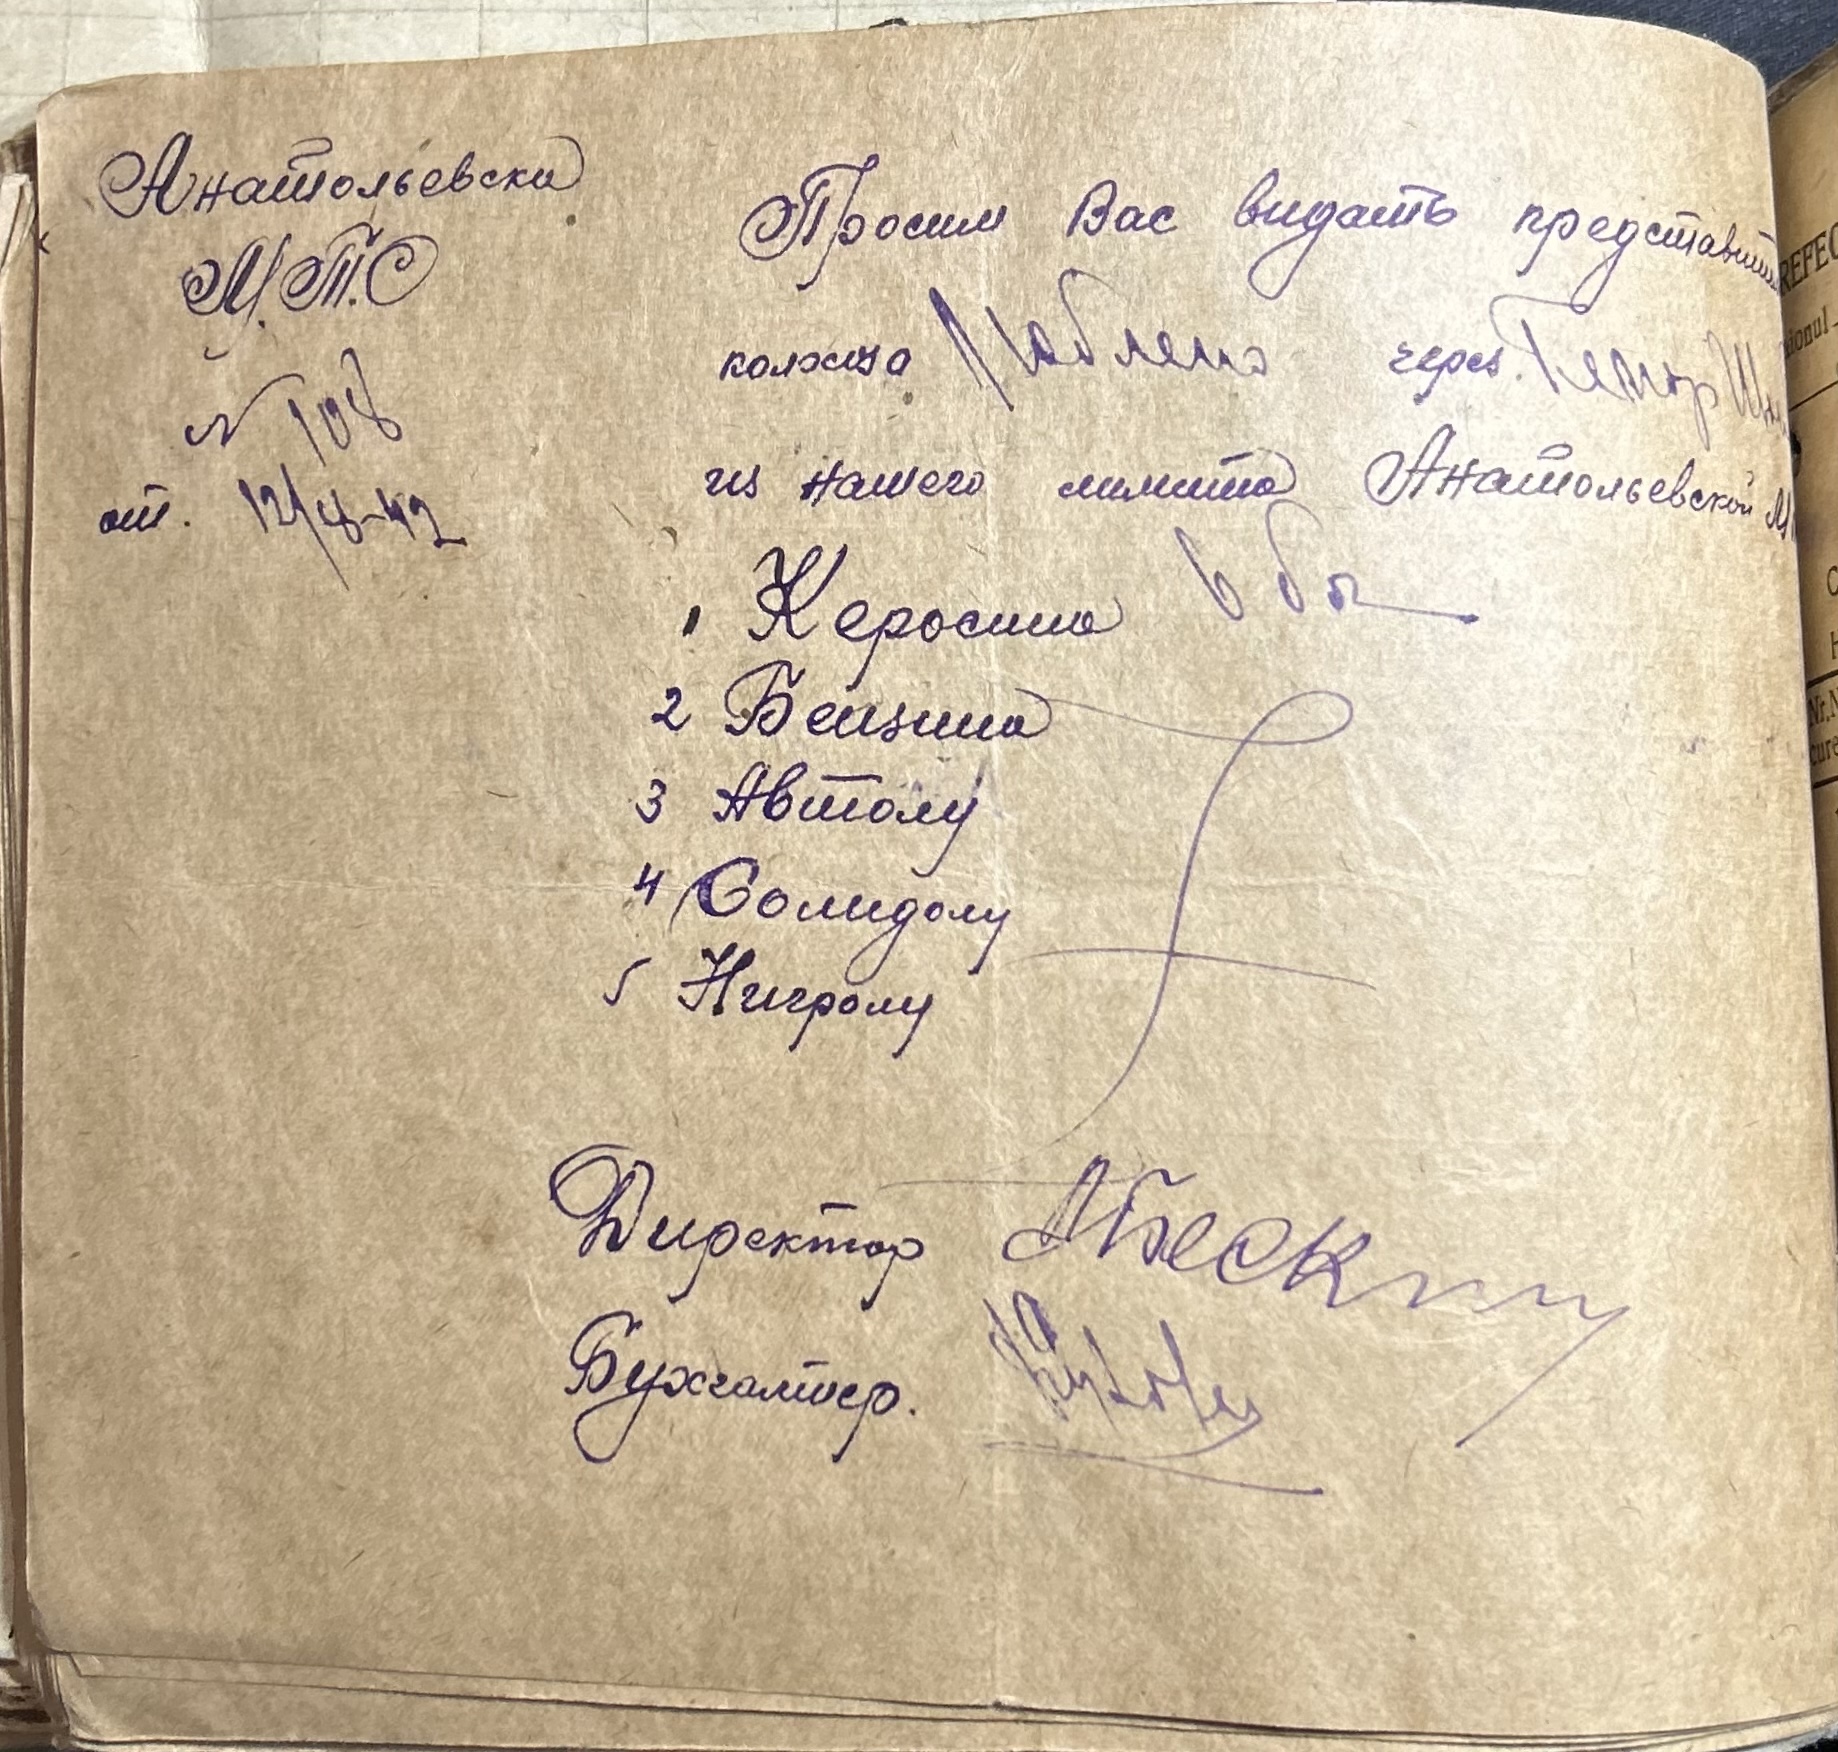 Анатольевска
М.Т.С
N 108
от. 12/8-42
Просим Вас видать представит
колхиза через
из нашего лимита Анатольевской М
1 Керосина
2 Бензина
3 Автолу
4 Солидолу
5 Нигролу
Директор
Бухгалтер.
REFEC
ional
Nr.